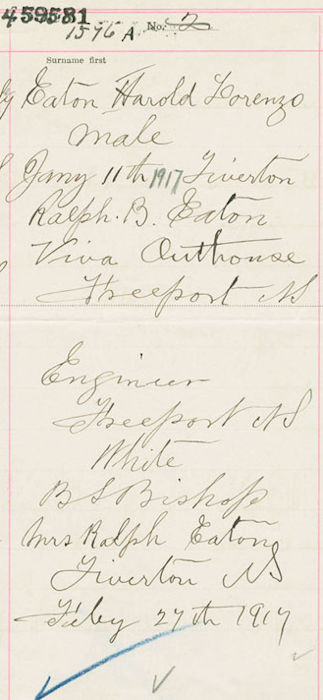 459581
1596 A No. 2
Surname first
Eaton Harold Lorenzo
Male
Jany 11th 1917 Tiverton
Ralph. B. Eaton
Viva Outhouse
Freeport NS
Engineer
Freeport NS
White
B S Bishop
Mrs Ralph Eaton
Tiverton NS
Feby 27th 1917